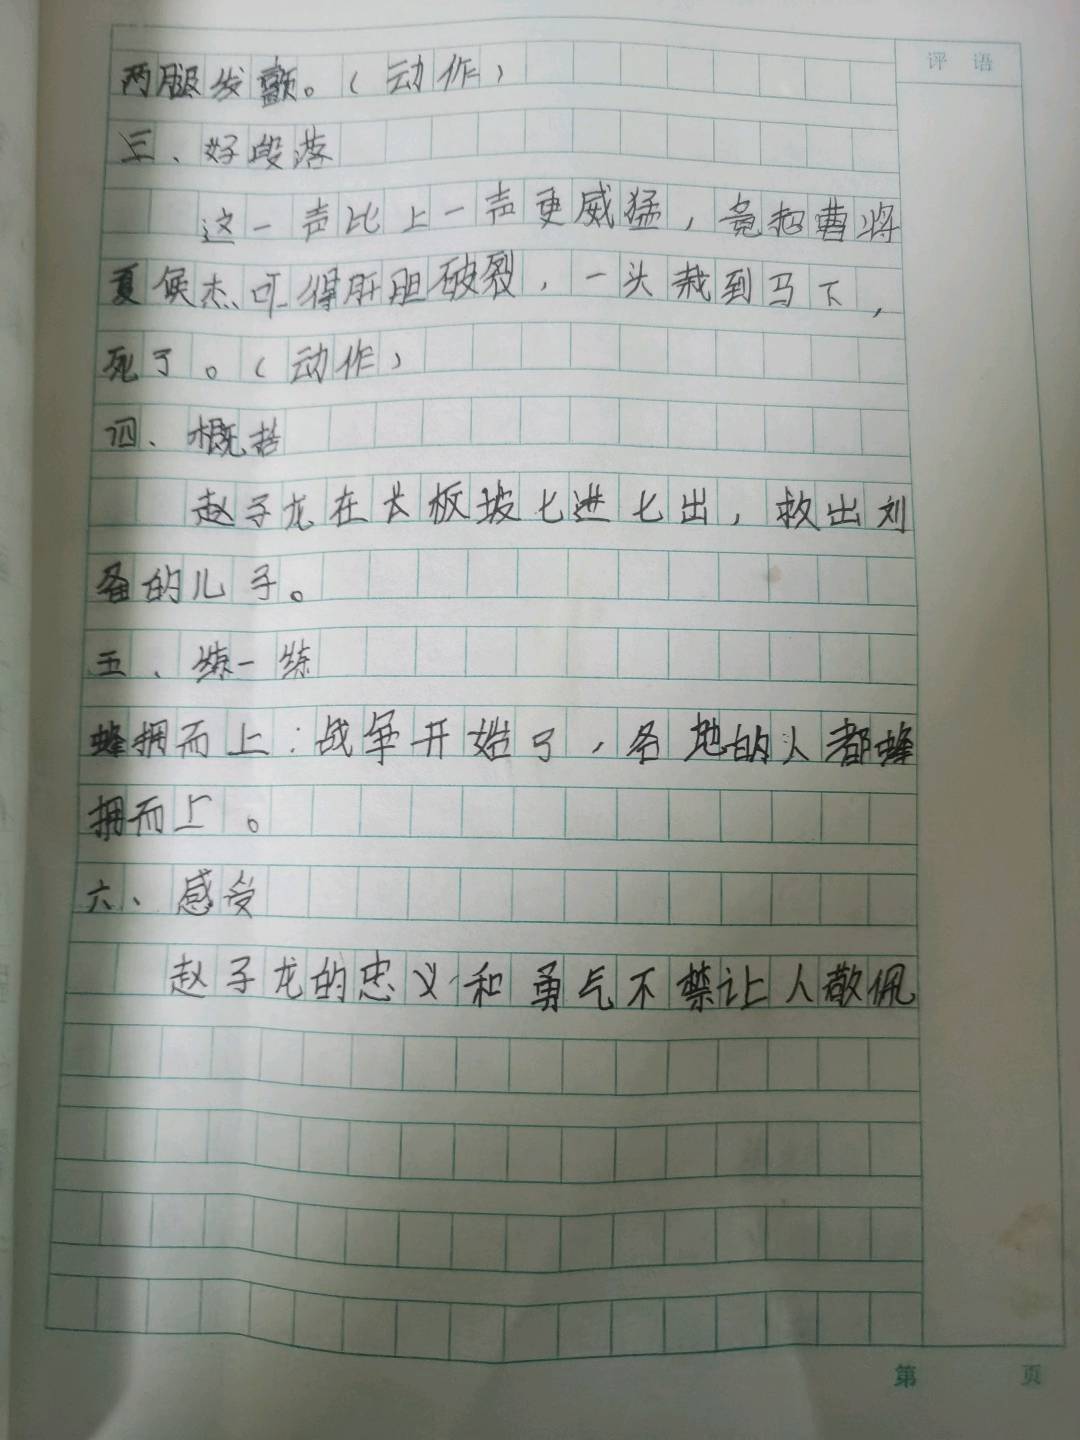 评语
两腿发颤。（动作）
三、好段落
这一声比上一声更威猛，竟把曹将
夏候杰吓得肝胆破裂，一头栽到马下，
死了。（动作）
四、概括
赵子龙在长板坡七进七出，救出刘
备的儿子。
五、练一练
蜂拥而上：战争开始了，各地的人都蜂
拥而上。
六、感受
赵子龙的忠义和勇气不禁让人敬佩
第 页